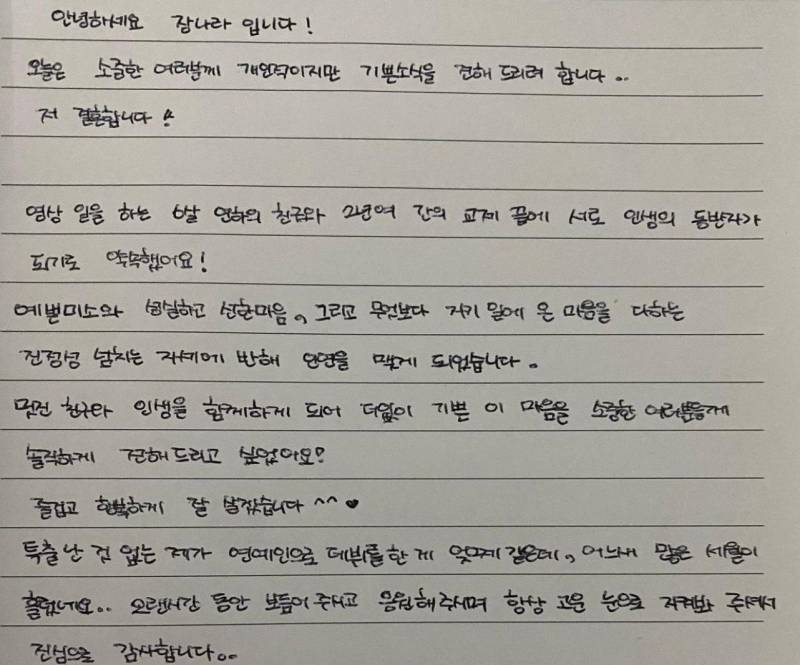 안녕하세요 장나라 입니다!
오늘은 소중한 여러분께 개인적이지만 기쁜소식을 전해 드리려 합니다..
저 결혼합니다!
영상 일을 하는 6살 연하의 친구와 2년여 간의 교제 끝에 서로 인생의 동반자가
되기로 약속했어요!
예쁜미소와 성실하고 선한마음, 그리고 무엇보다 자기 일에 온 마음을 다하는
진정성 넘치는 자세에 반해 인연을 맺게 되었습니다.
멋진 친구와 인생을 함께하게 되어 더없이 기쁜 이 마음을 소중한 여러분들께
솔직하게 전해드리고 싶었어요!
즐겁고 행복하게 잘 살겠습니다 ^^ ♥
특출난 것 없는 제가 연예인으로 데뷔를 한 게 엊그제 같은데, 어느새 많은 세월이
흘렀네요.. 오랜시간 동안 보듬어주시고 응원해주시며 항상 고운 눈으로 지켜봐 주셔서
진심으로 감사합니다..